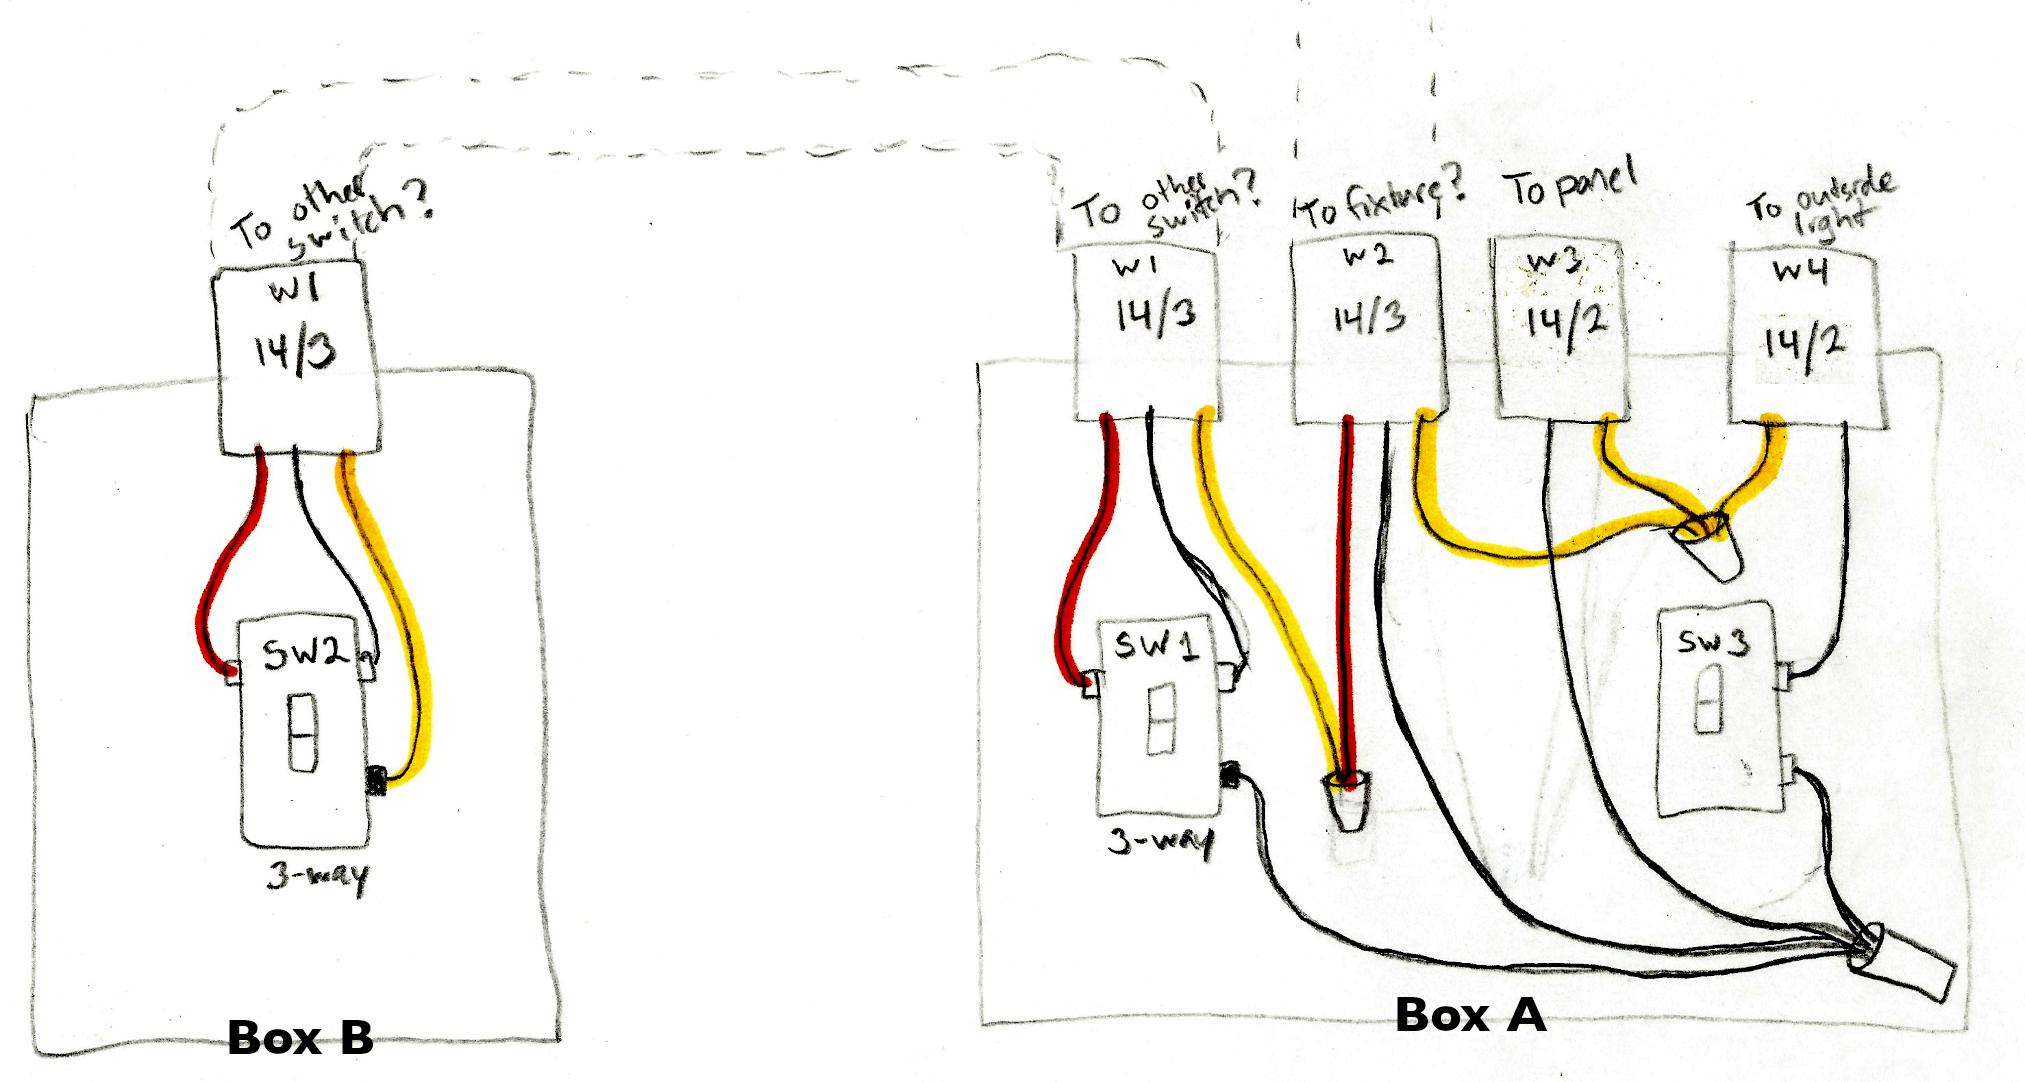 To other
switch?
W1
14/3
SW2
3-way
Box B
To other
switch?
W1
14/3
To fixture?
W2
14/3
To panel
W3
14/2
To outside
light
W4
14/2
SW1
3-way
SW3
Box A